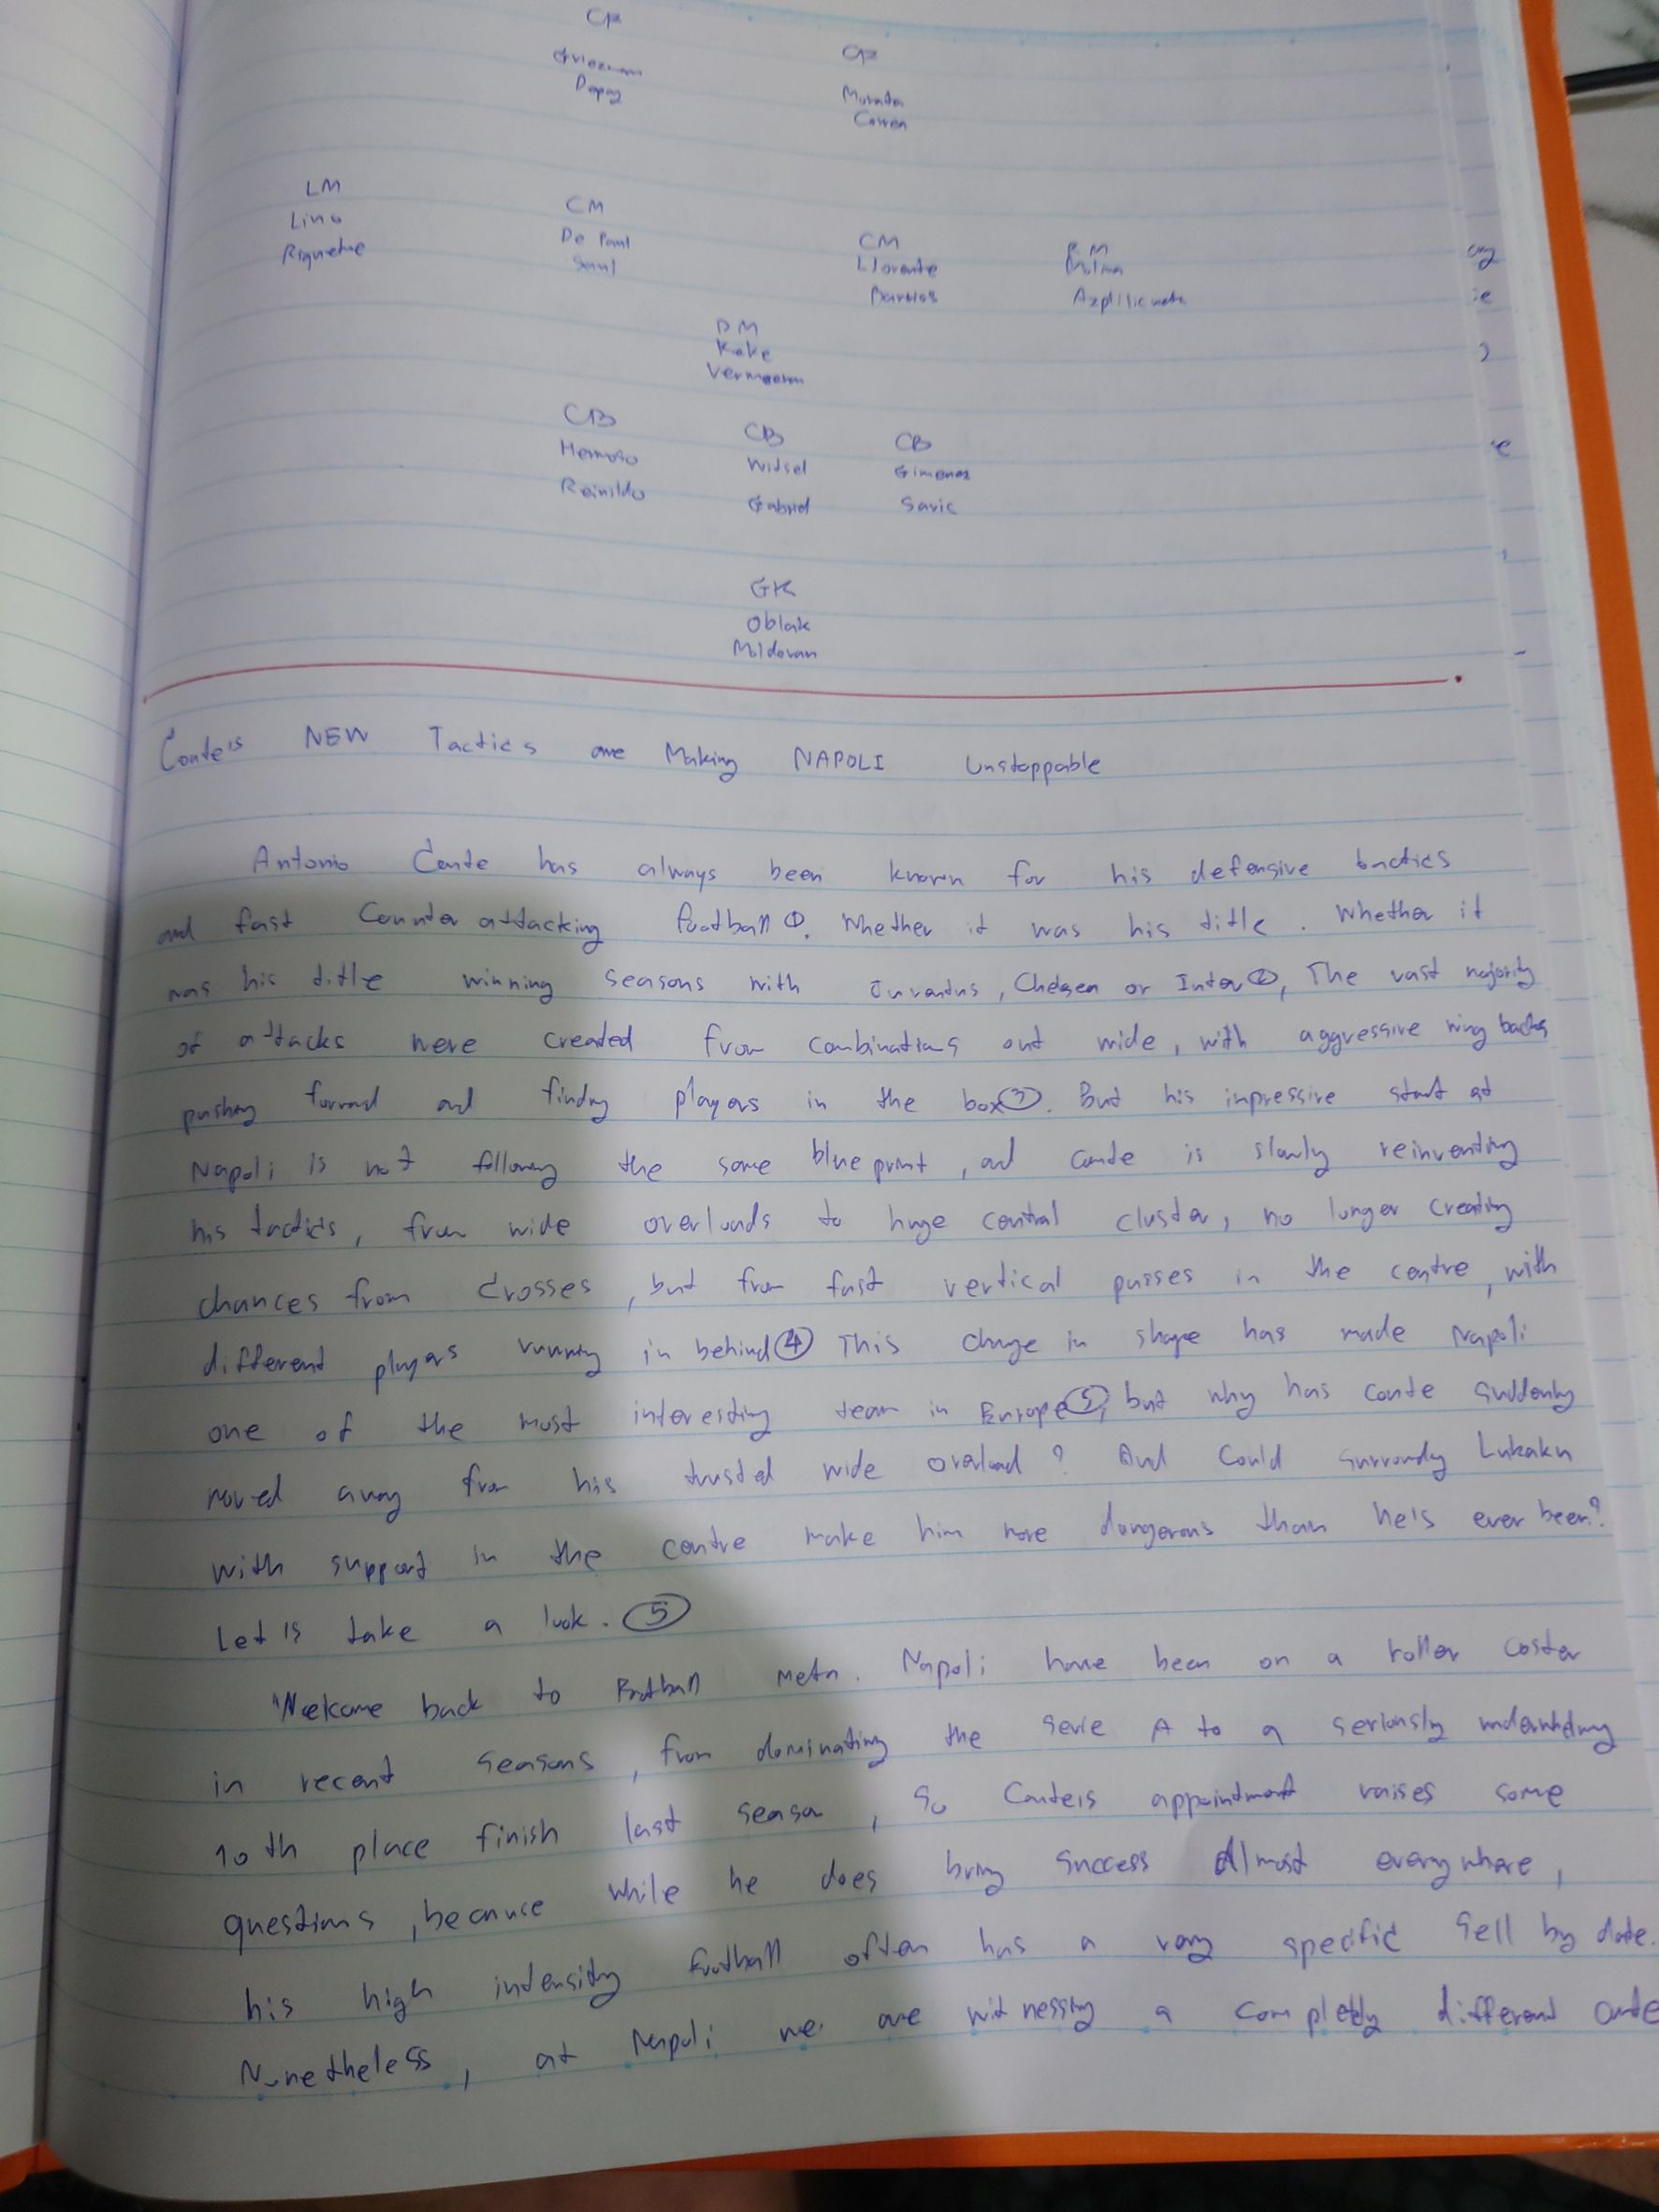 CF
CF
Griezmann
Depay
Morata
Correa
LM
CM
Lino
De Paul
CM
RM
Riquelme
Saul
Llorente
Molina
Barrios
Azpilicueta
DM
Koke
Vermeeren
CB
CB
CB
Hermoso
Witsel
Gimenez
Reinildo
Gabriel
Savic
GK
Oblak
Moldovan
Conte's NEW Tactics are Making NAPOLI Unstoppable
Antonio Conte has always been known for his defensive tactics
and fast Counter attacking football ①. Whether it was his title. Whether it
was his title winning seasons with Juventus, Chelsea or Inter ②, The vast majority
of attacks were created from combinations out wide, with aggressive wing backs
pushing forward and finding players in the box ③. But his impressive start at
Napoli is not following the same blue print, and Conte is slowly reinventing
his tactics, from wide overloads to huge central cluster, no longer creating
chances from crosses, but from fast vertical passes in the centre, with
different players running in behind ④ This change in shape has made Napoli
one of the most interesting team in Europe ⑤, but why has conte suddenly
moved away from his trusted wide overload? And Could surrounding Lukaku
with support in the centre make him more dangerous than he's ever been?
Let's take a look. ⑤
Welcome back to Football Meta. Napoli have been on a roller coster
in recent seasons, from dominating the serie A to a seriously underwhelming
10th place finish last season, so Conte's appointment raises some
questions, because while he does bring success Almost everywhere,
his high intensity football often has a very specific sell by date.
Nonetheless, at Napoli we are witnessing a completely different Conte